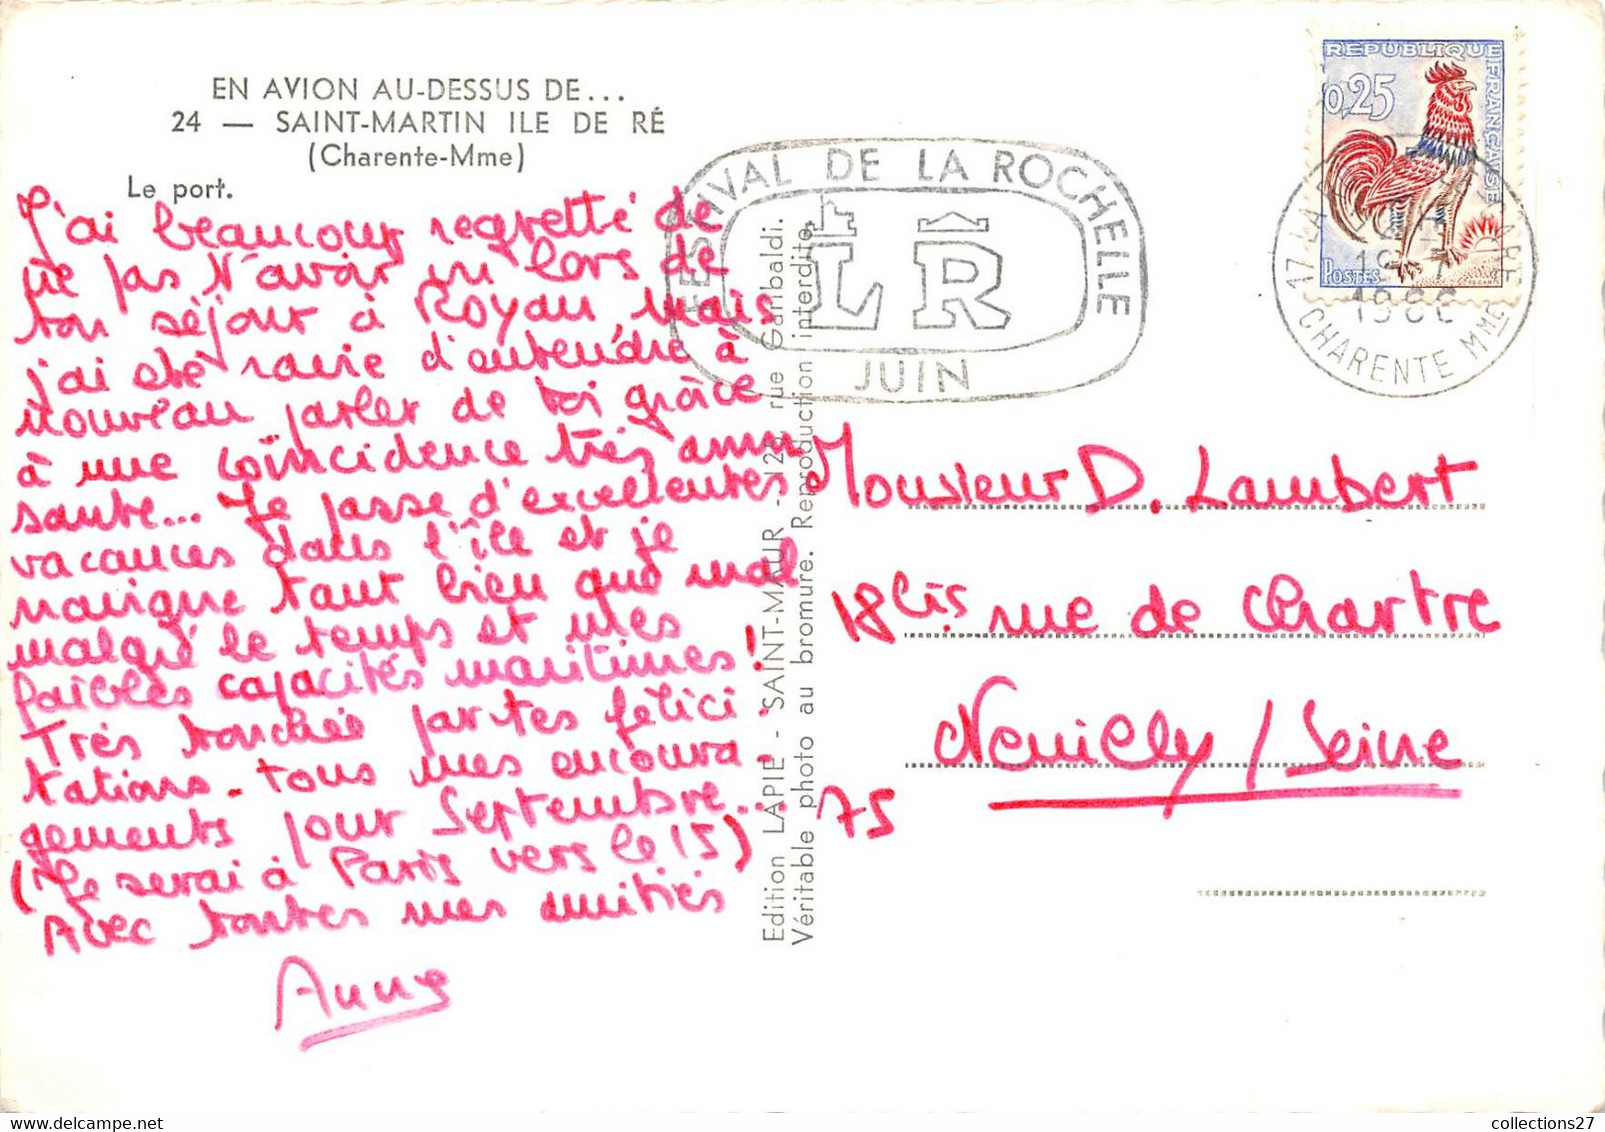 EN AVION AU-DESSUS DE...
24 — SAINT-MARTIN ILE DE RÉ
(Charente-Mme)
Le port.
J'ai beaucoup regretté de
ne pas t'avoir vu lors de
ton séjour à Royan, mais
j'ai été ravie d'entendre à
nouveau parler de toi grâce
à une coïncidence très amu
sante... Je passe d'excellentes
vacances dans l'île et je
navigue tant bien que mal
malgré le temps et mes
faibles capacités maritimes!
Très touchée par tes félici
tations - tous mes encoura
gements pour Septembre...
(Je serai à Paris vers le 15)
Avec toutes mes amitiés
Anne
Edition LAPIE - SAINT-MAUR - 128, rue Garibaldi.
Véritable photo au bromure. Reproduction interdite.
FESTIVAL DE LA ROCHELLE
LR
JUIN
REPUBLIQUE FRANÇAISE
0,25
POSTES
17 LA
1966
CHARENTE MME
Monsieur D. Lambert
18bis rue de Chartre
Neuilly / Seine
75
collections27